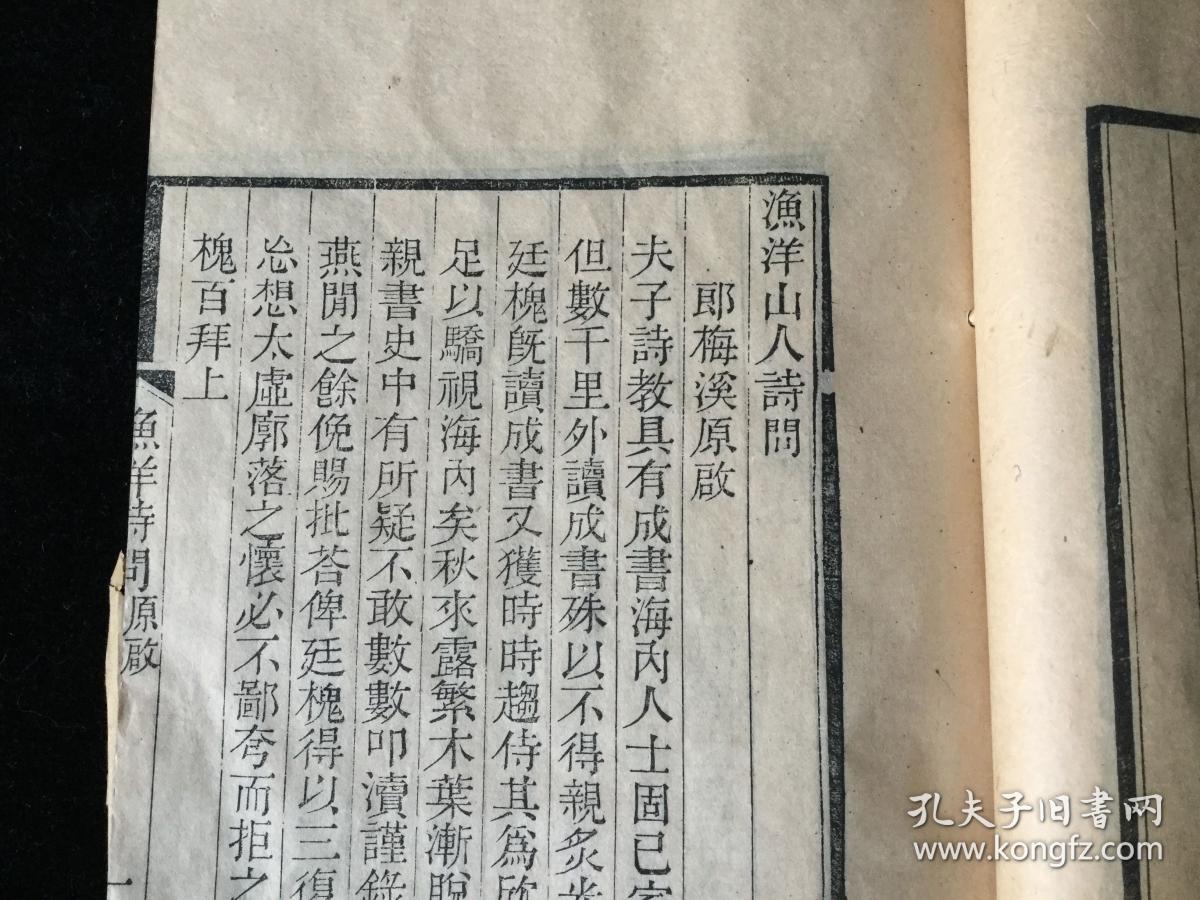 漁洋山人詩問
郎梅溪原啟
夫子詩教具有成書海內人士固已
但數千里外讀成書殊以不得親炙
廷槐既讀成書又獲時時趨侍其為欣
足以驕視海內矣秋來露繁木葉漸脫
親書史中有所疑不敢數數叩瀆謹錄
燕閒之餘俛賜批荅俾廷槐得以三復
㤀想太虛廓落之懷必不鄙夸而拒之
槐百拜上
漁洋詩問原啟
一
孔夫子旧書网
www.kongfz.com